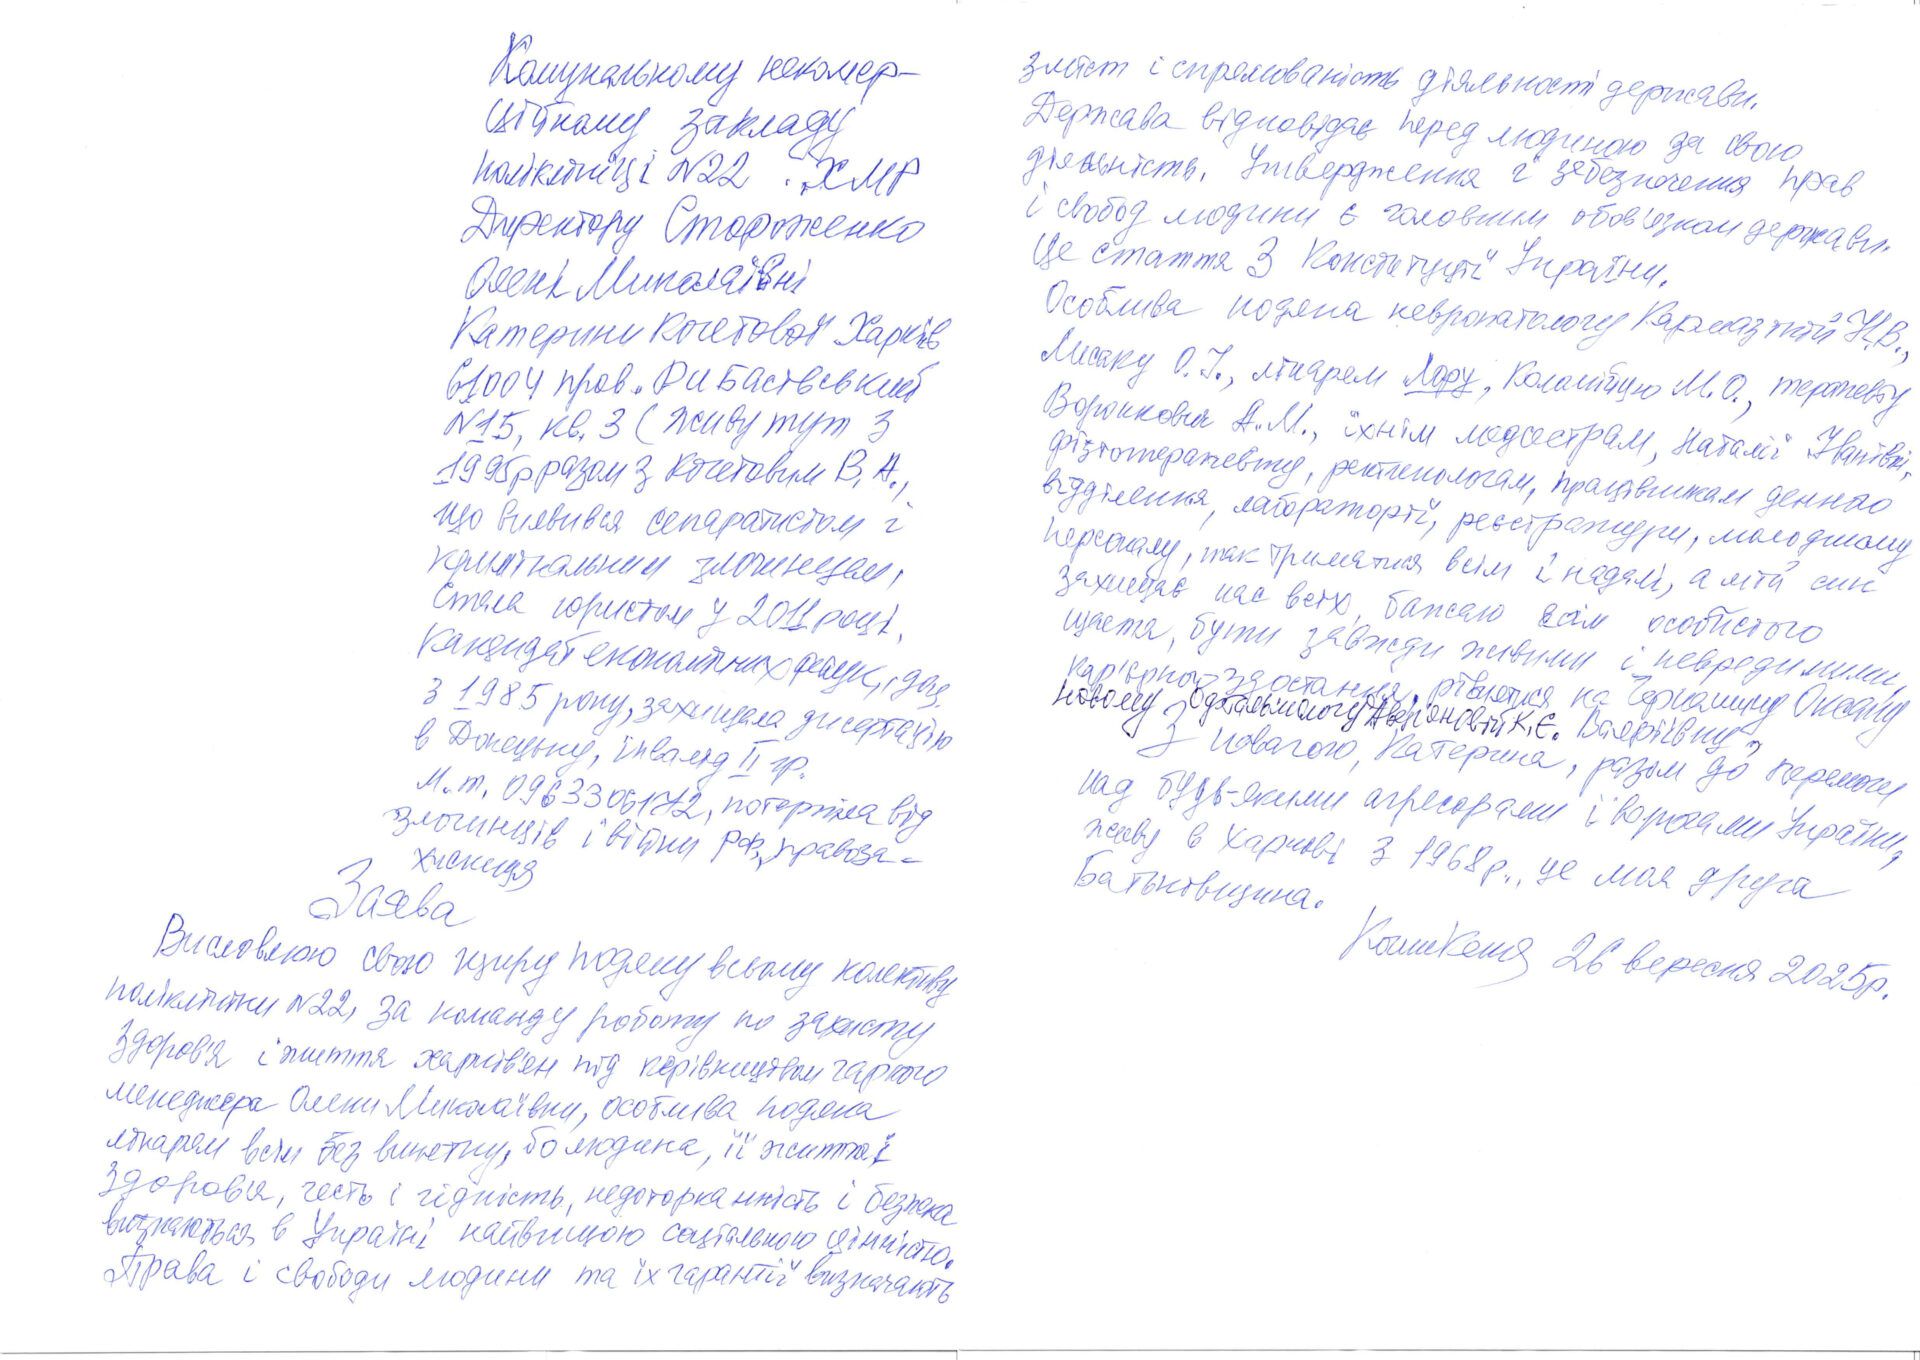 Комунальному некомер-
ційному закладу
поліклініці №22 ХМР
Директору Стороженко
Олені Миколаївні
Катерини Кочетової Харків
61004 пров. Рибасівський
№15, кв. 3 (живу тут з
1995р разом з Кочетовим В.А.,
що виявився сепаратистом і
кримінальним злочинцем,
стала юристом у 2011 році,
кандидат економічних наук, доц.
з 1985 року, захищала дисертацію
в Донецьку, інвалід II гр.
м.т. 0963306172, потерпіла від
злочинців і війни РФ, правоза-
хисниця
Заява
Висловлюю свою щиру подяку всьому колективу
поліклініки №22, за команду роботу по захисту
здоров'я і життя харків'ян під керівництвом гарного
менеджера Олени Миколаївни, особлива подяка
лікарям всім без винятку, бо людина, її життя і
здоров'я, честь і гідність, недоторканність і безпека
визнаються в Україні найвищою соціальною цінністю.
Права і свободи людини та їх гарантії визначають
зміст і спрямованість діяльності держави.
Держава відповідає перед людиною за свою
діяльність. Утвердження і забезпечення прав
і свобод людини є головним обов'язком держави.
Це стаття 3 Конституції України.
Особлива подяка невропатологу Кармазіній Н.В.,
Лисаку О.І., лікарем Лору, Коломійцю М.О., терапевту
Воронкович А.М., їхнім медсестрам, Наталії Іванівні,
фізіотерапевту, рентгенологам, працівникам денного
відділення, лабораторії, реєстратури, молодшому
персоналу, так триматися всім і надалі, а мій син
захищає нас всіх, бажаю всім особистого
щастя, бути завжди живими і невредимими,
кар'єрного зростання, рівнятися на Чернашину Оксану
новому Офтальмологу Аверіановій К.Є. Валеріївну,
З повагою, Катерина, разом до перемоги
над будь-якими агресорами і ворогами України,
живу в Харкові з 1968р., це моя друга
Батьківщина.
26 вересня 2025р.